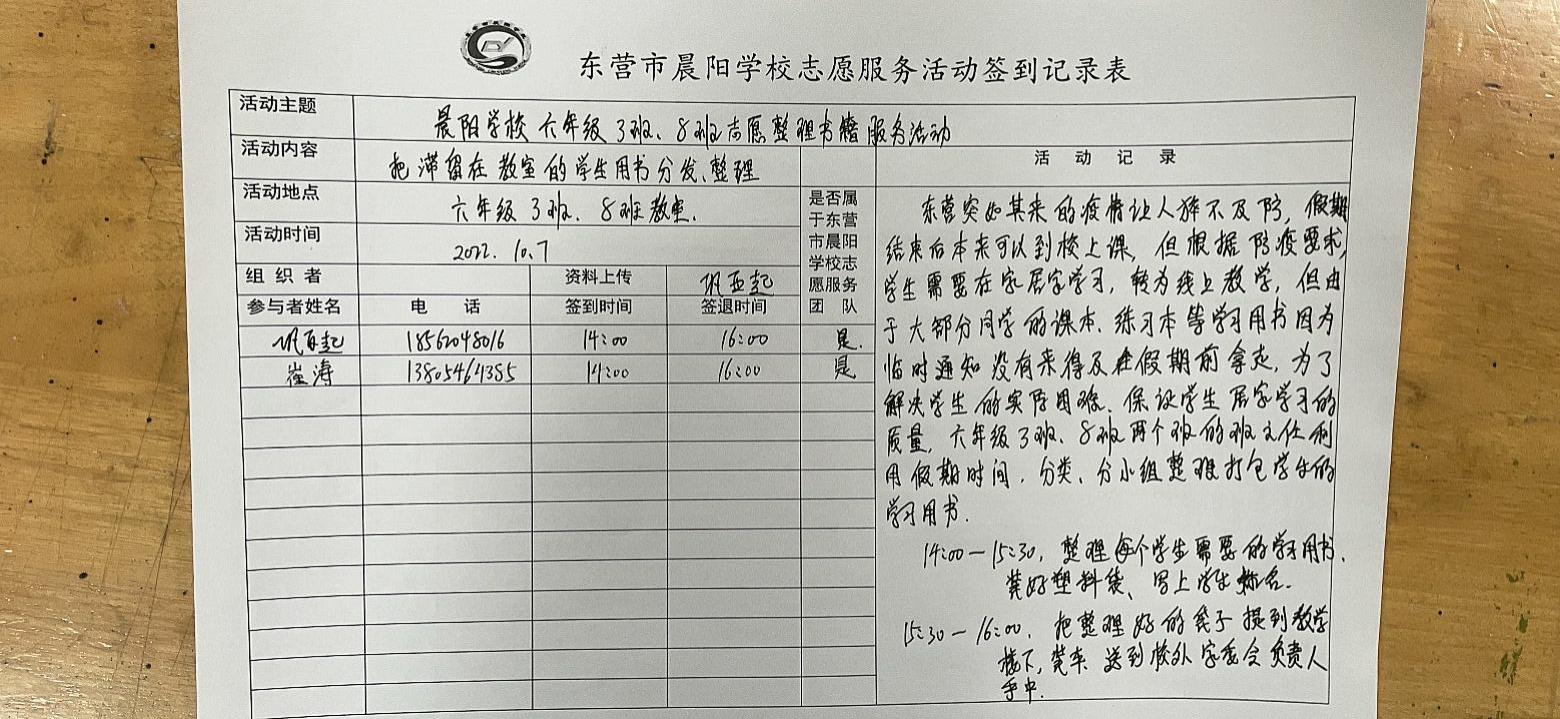 东营市晨阳学校志愿服务活动签到记录表
活动主题 晨阳学校六年级3班、8班志愿整理书籍服务活动
活动内容 把滞留在教室的学生用书分发、整理
活动地点 六年级3班、8班教室.
活动时间 2022.10.7
组织者 资料上传 巩百起
参与者姓名 电话 签到时间 签退时间
是否属
于东营
市晨阳
学校志
愿服务
团队
巩百起 18562048016 14:00 16:00 是.
崔涛 13805464385 14:00 16:00 是
活动记录
东营突如其来的疫情让人猝不及防,假期
结束后本来可以到校上课,但根据防疫要求,
学生需要在家居家学习,转为线上教学,但由
于大部分同学的课本、练习本等学习用书因为
临时通知没有来得及在假期前拿走,为了
解决学生的实际困难、保证学生居家学习的
质量,六年级3班、8班两个班的班主任利
用假期时间,分类、分小组整理打包学生的
学习用书.
14:00—15:30,整理每个学生需要的学习用书、
装好塑料袋、写上学生姓名.
15:30—16:00,把整理好的袋子提到教学
楼下,装车、送到校外家委会负责人
手中.